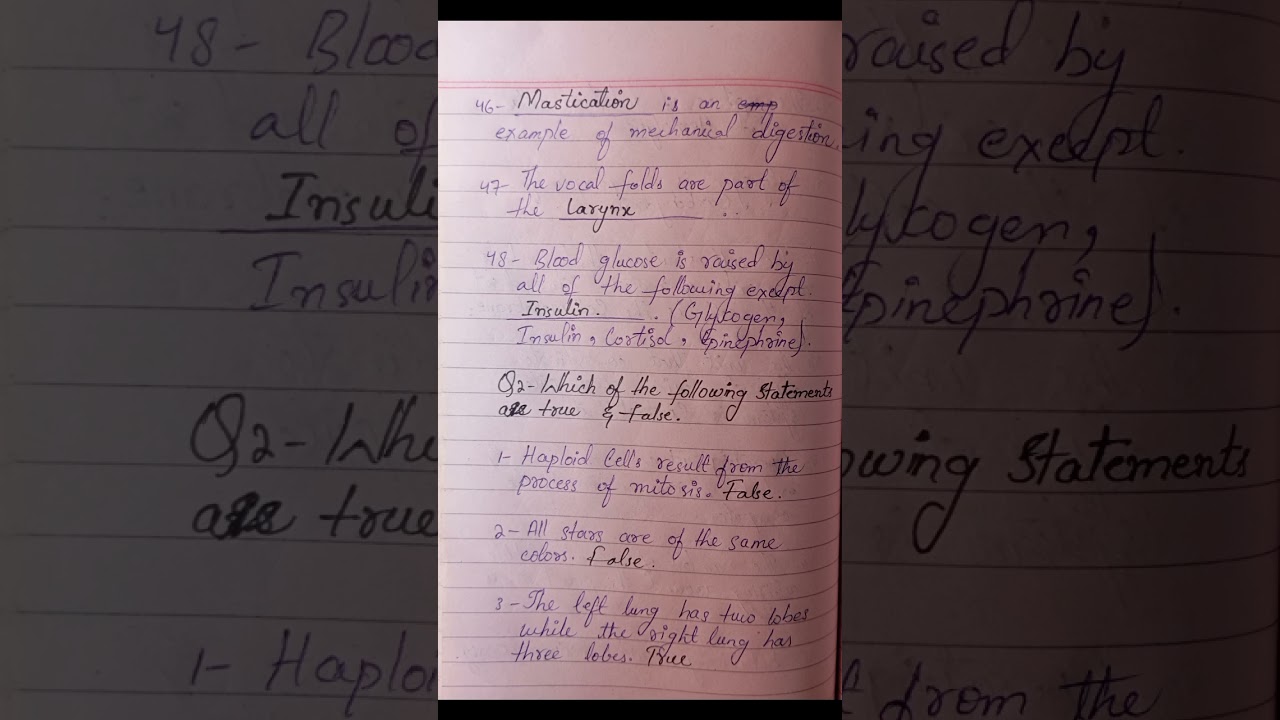 46- Mastication is an emp
example of mechanical digestion.
47- The vocal folds are part of
the Larynx
48- Blood glucose is raised by
all of the following except.
Insulin. (Glytogen,
Insulin, Cortisol, Epinephrine).
Q2- Which of the following Statements
are true & false.
1- Haploid Cells result from the
process of mitosis. False.
2- All stars are of the same
colors. False.
3- The left lung has two lobes
while the right lung has
three lobes. True